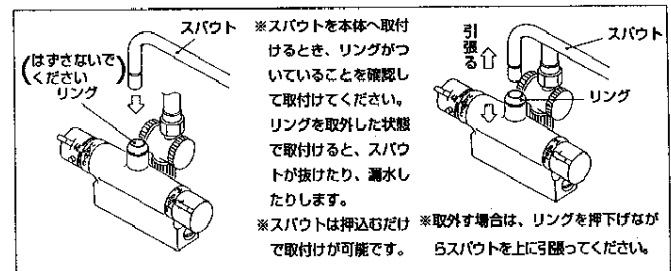 スパウト
(はずさないで
ください)
リング
※スパウトを本体へ取付
けるとき、リングがつ
いていることを確認し
て取付けてください。
リングを取外した状態
で取付けると、スパウ
トが抜けたり、漏水し
たりします。
※スパウトは押込むだけ
で取付けが可能です。
引張る
スパウト
リング
※取外す場合は、リングを押下げなが
らスパウトを上に引張ってください。